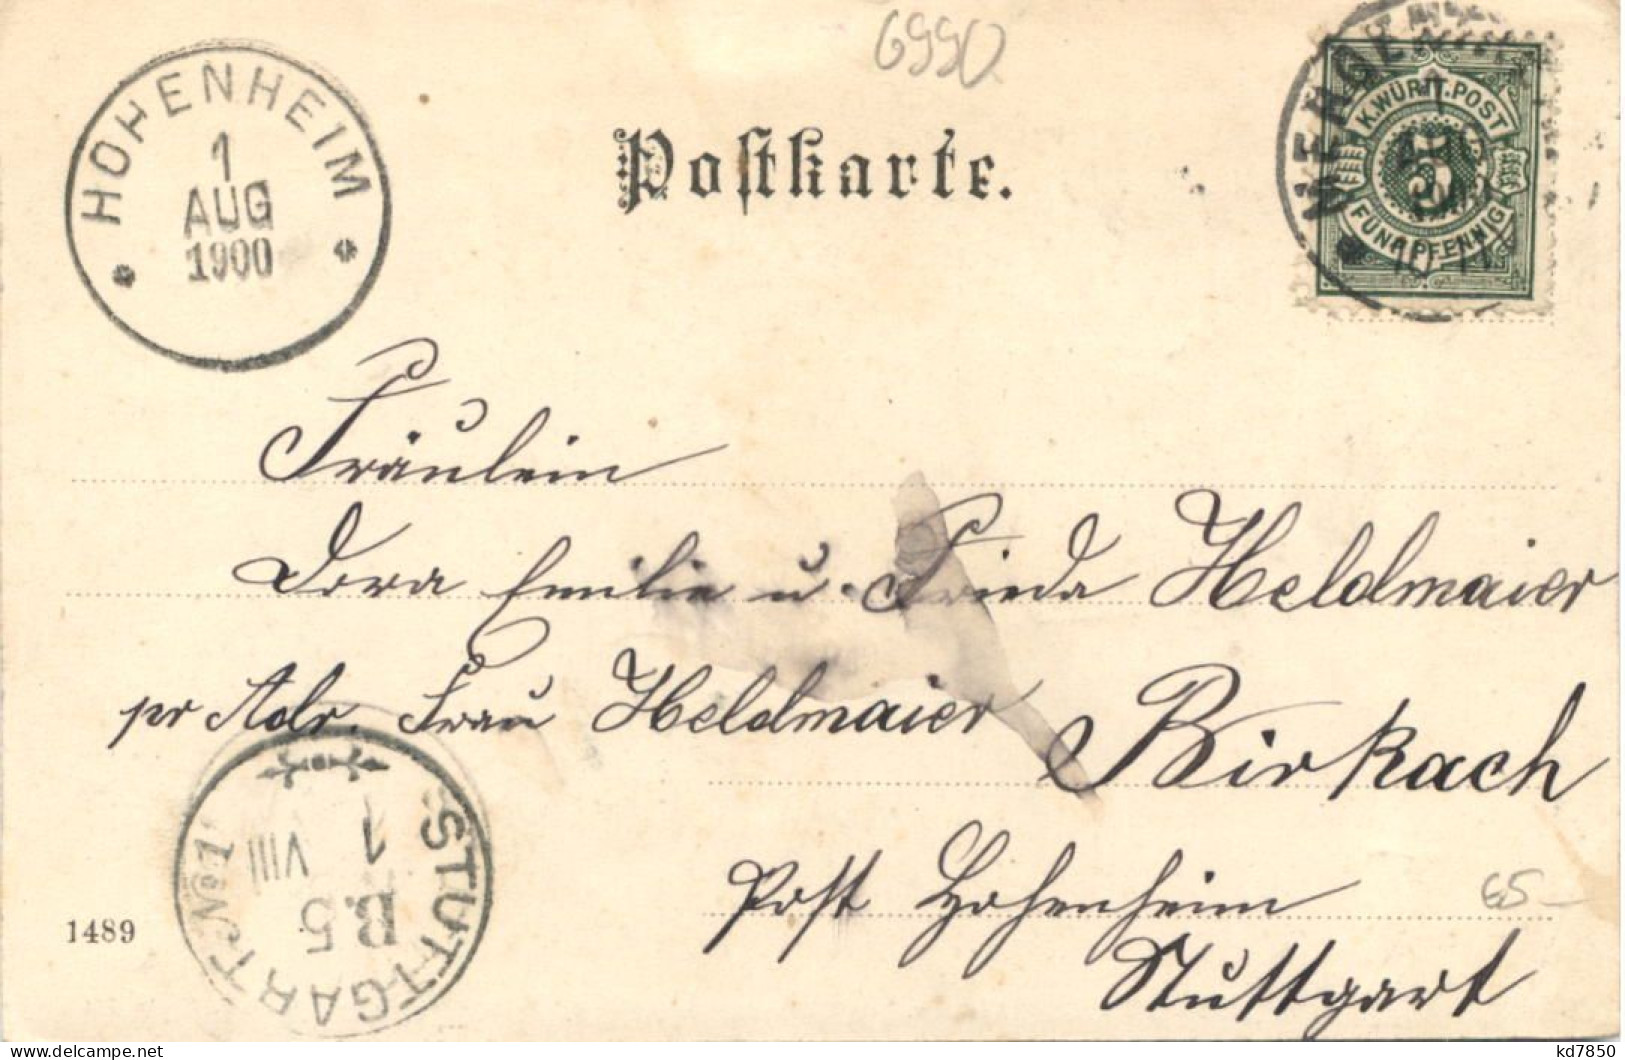 6990
HOHENHEIM
1
AUG
1900
Postkarte.
MERGE
K.WÜRTT.POST
5
FÜNF PFENNIG
Fräulein
Dora Emilie u. Frieda Heldmaier
pr Adr. Frau Heldmaier
Birkach
Post Hohenheim
Stuttgart
65-
STUTTGART No 1
1
VIII
B.5
1489
www.delcampe.net
kd7850